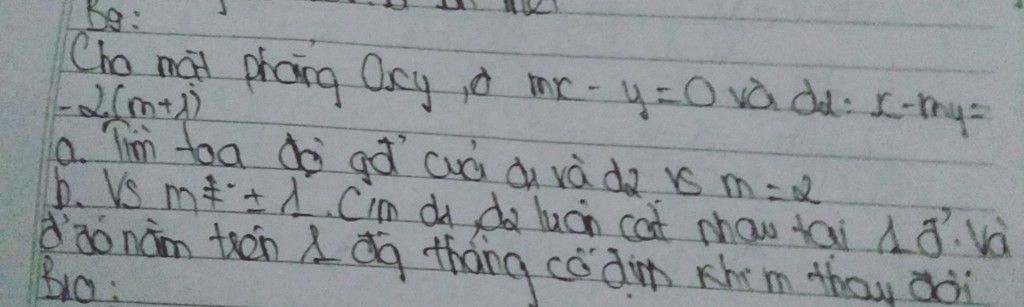 B9:
Cho mặt phẳng Oxy, d mx - y = 0 và d2: x - my =
-2(m+1)
a. Tìm tọa độ gđ' của d1 và d2 vs m = 2
b. Vs m ≠ ± 1. Cm d1, d2 luôn cắt nhau tại 1 đ'. Và
đ' đó nằm trên 1 đg thẳng cố định khi m thay đổi
B10: